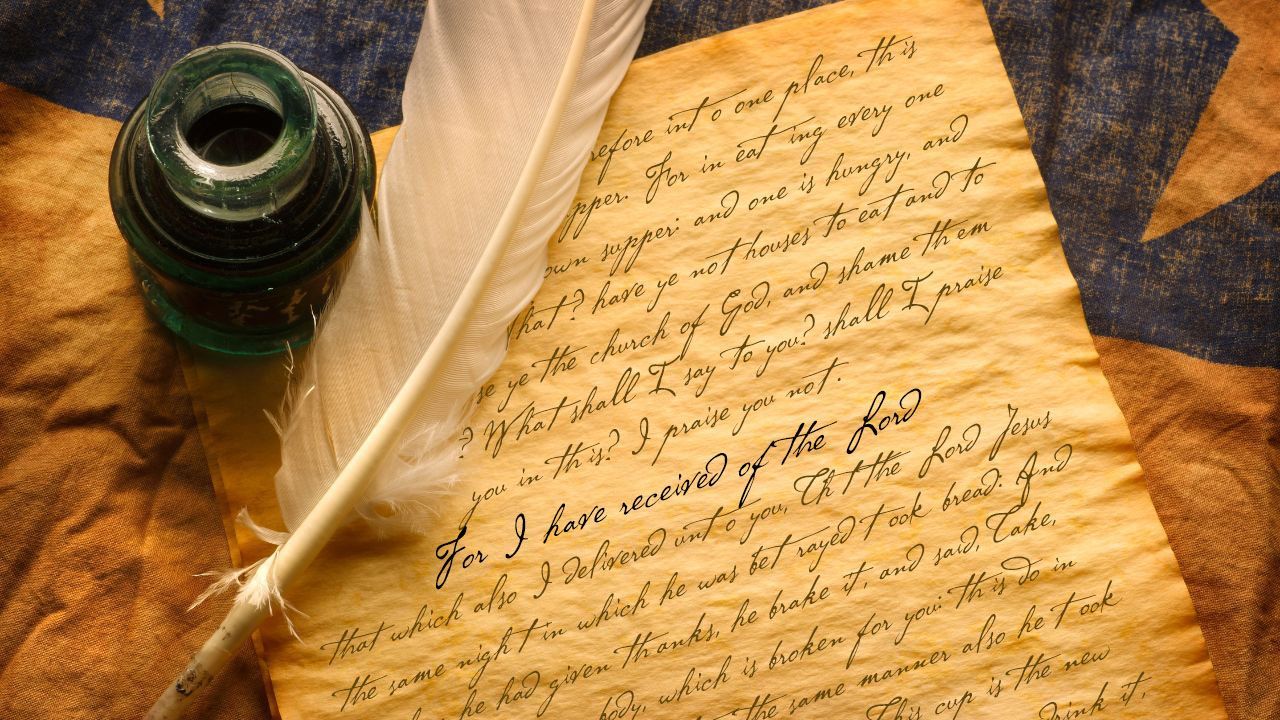 refore into one place, this
pper. For in eating every one
own supper: and one is hungry, and
hat? have ye not houses to eat and to
se ye the church of God, and shame them
? What shall I say to you? shall I praise
you in this? I praise you not.
For I have received of the Lord
that which also I delivered unto you, That the Lord Jesus
the same night in which he was betrayed took bread: And
he had given thanks, he brake it, and said, Take,
body, which is broken for you: this do in
the same manner also he took
This cup is the new
drink it,